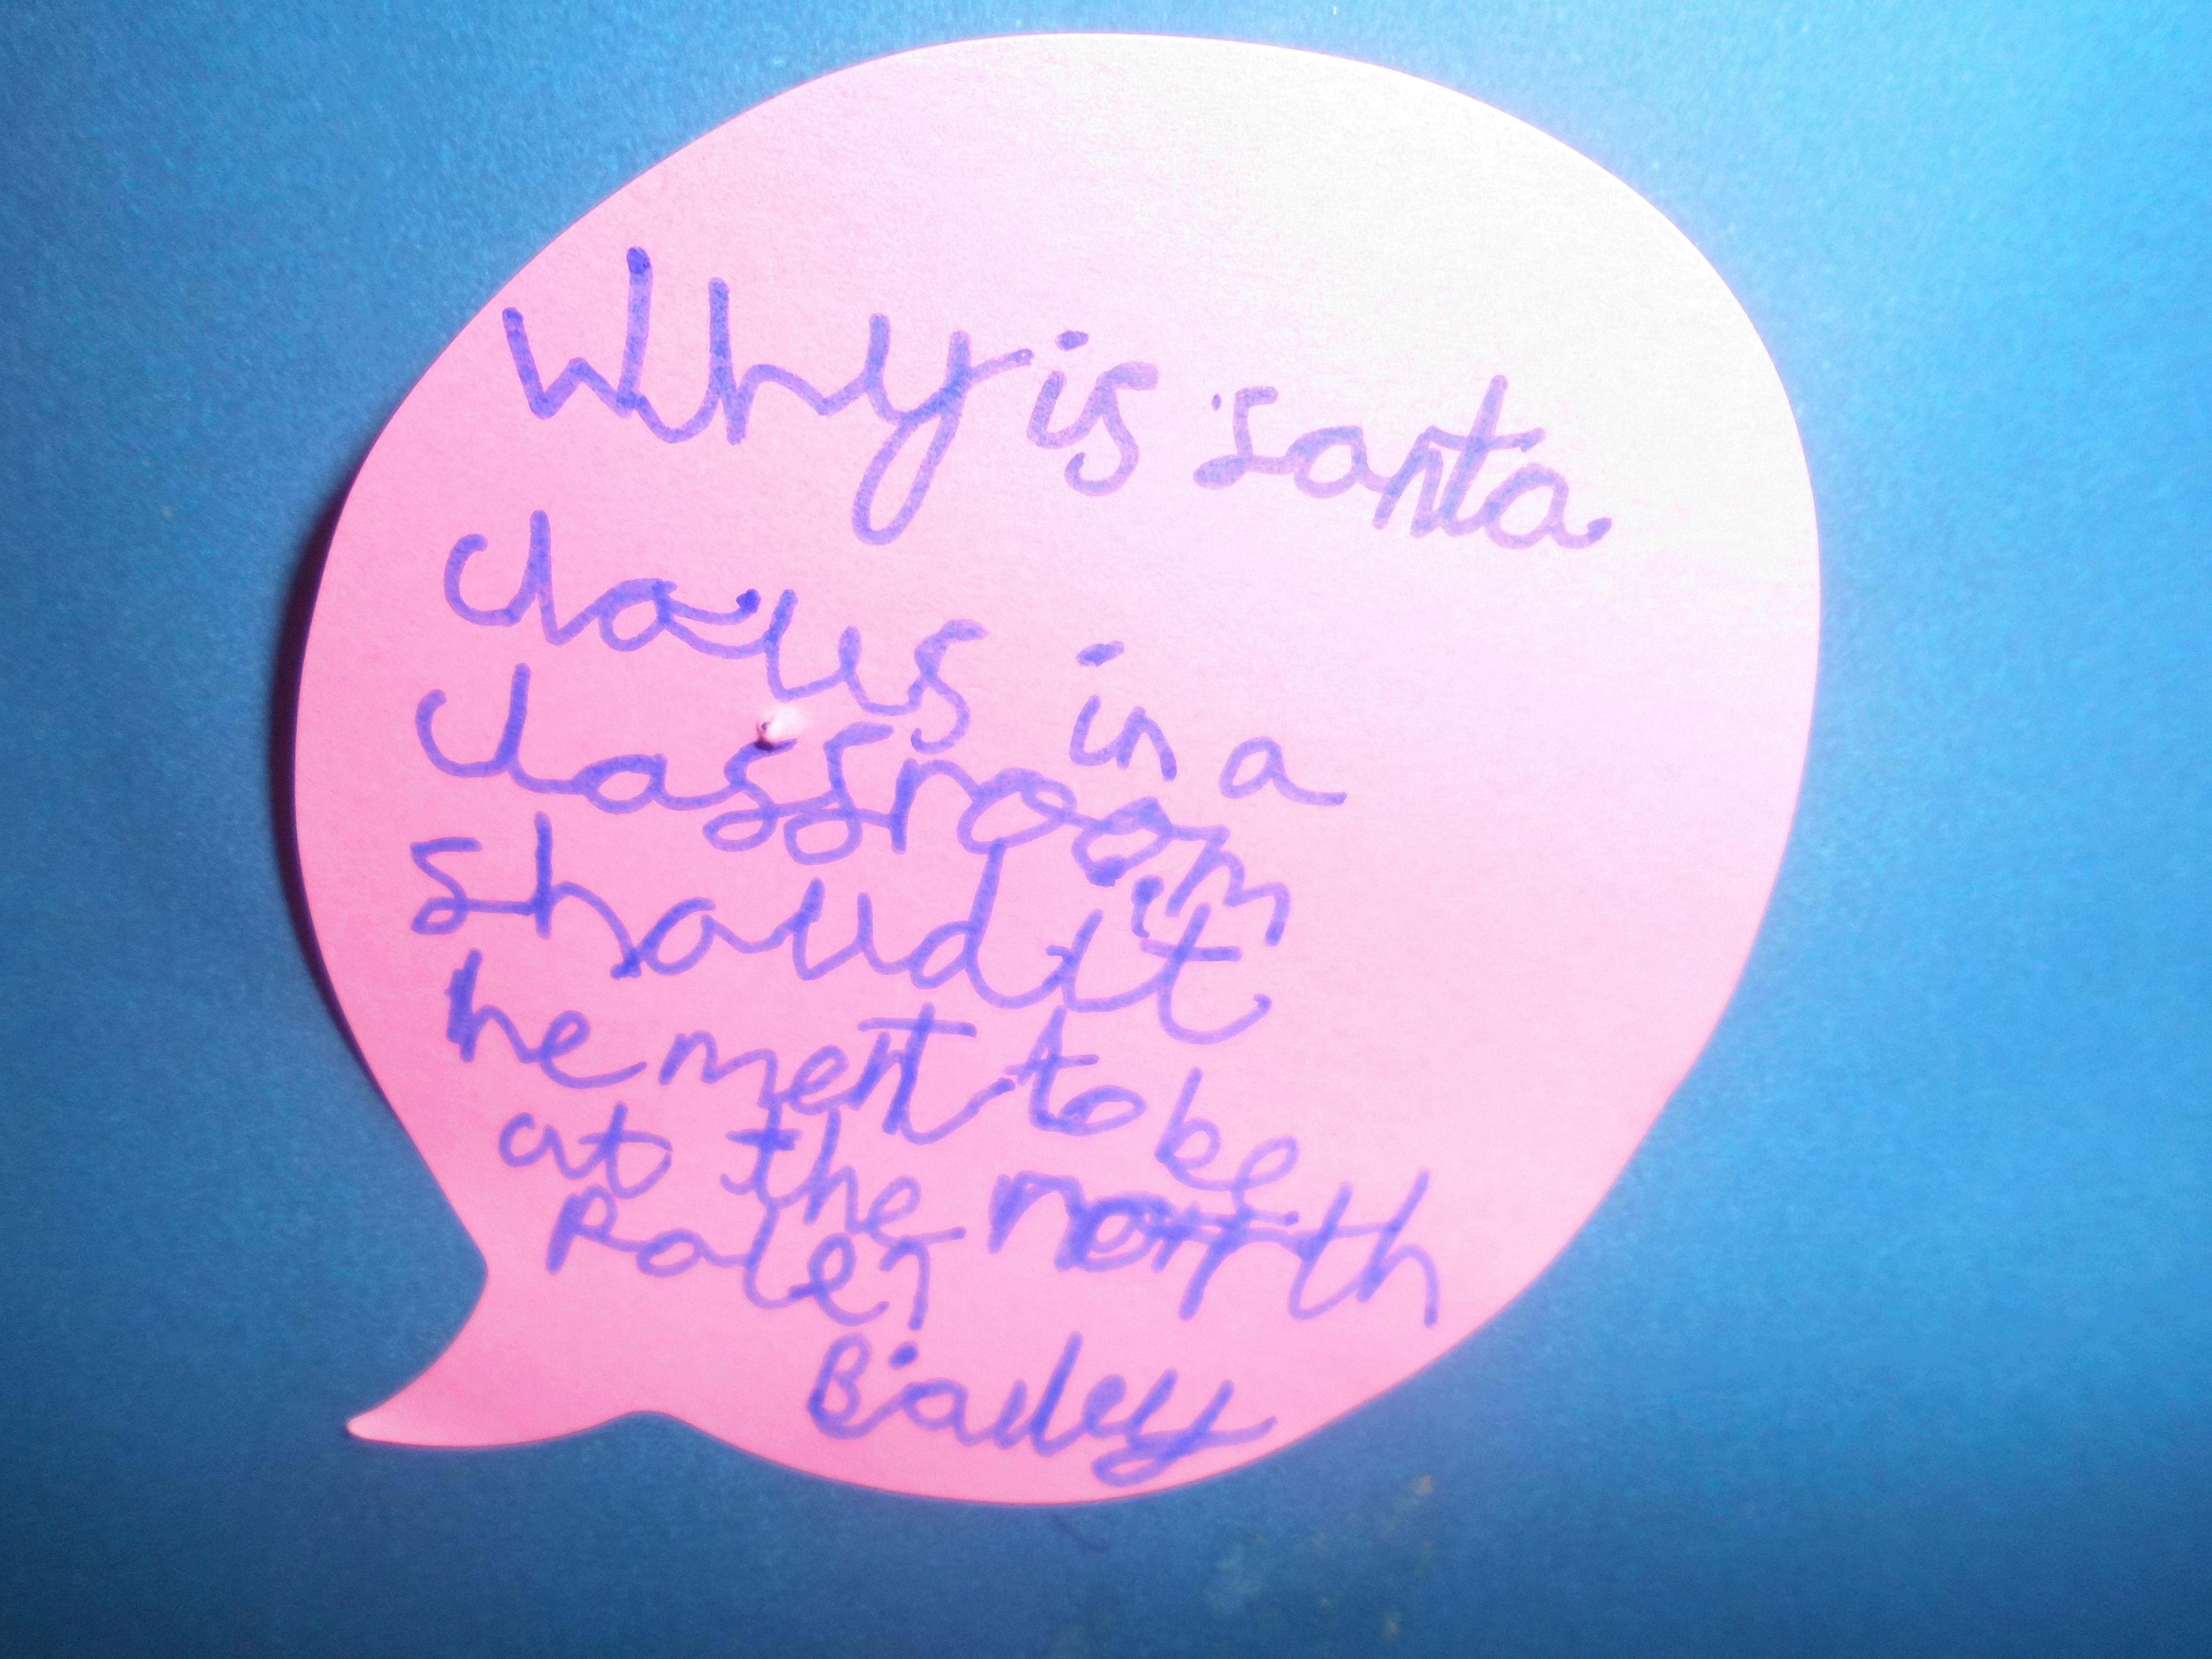 Why is santa
claus in a
classroom
shoudit
he ment to be
at the north
Pole?
Bailey